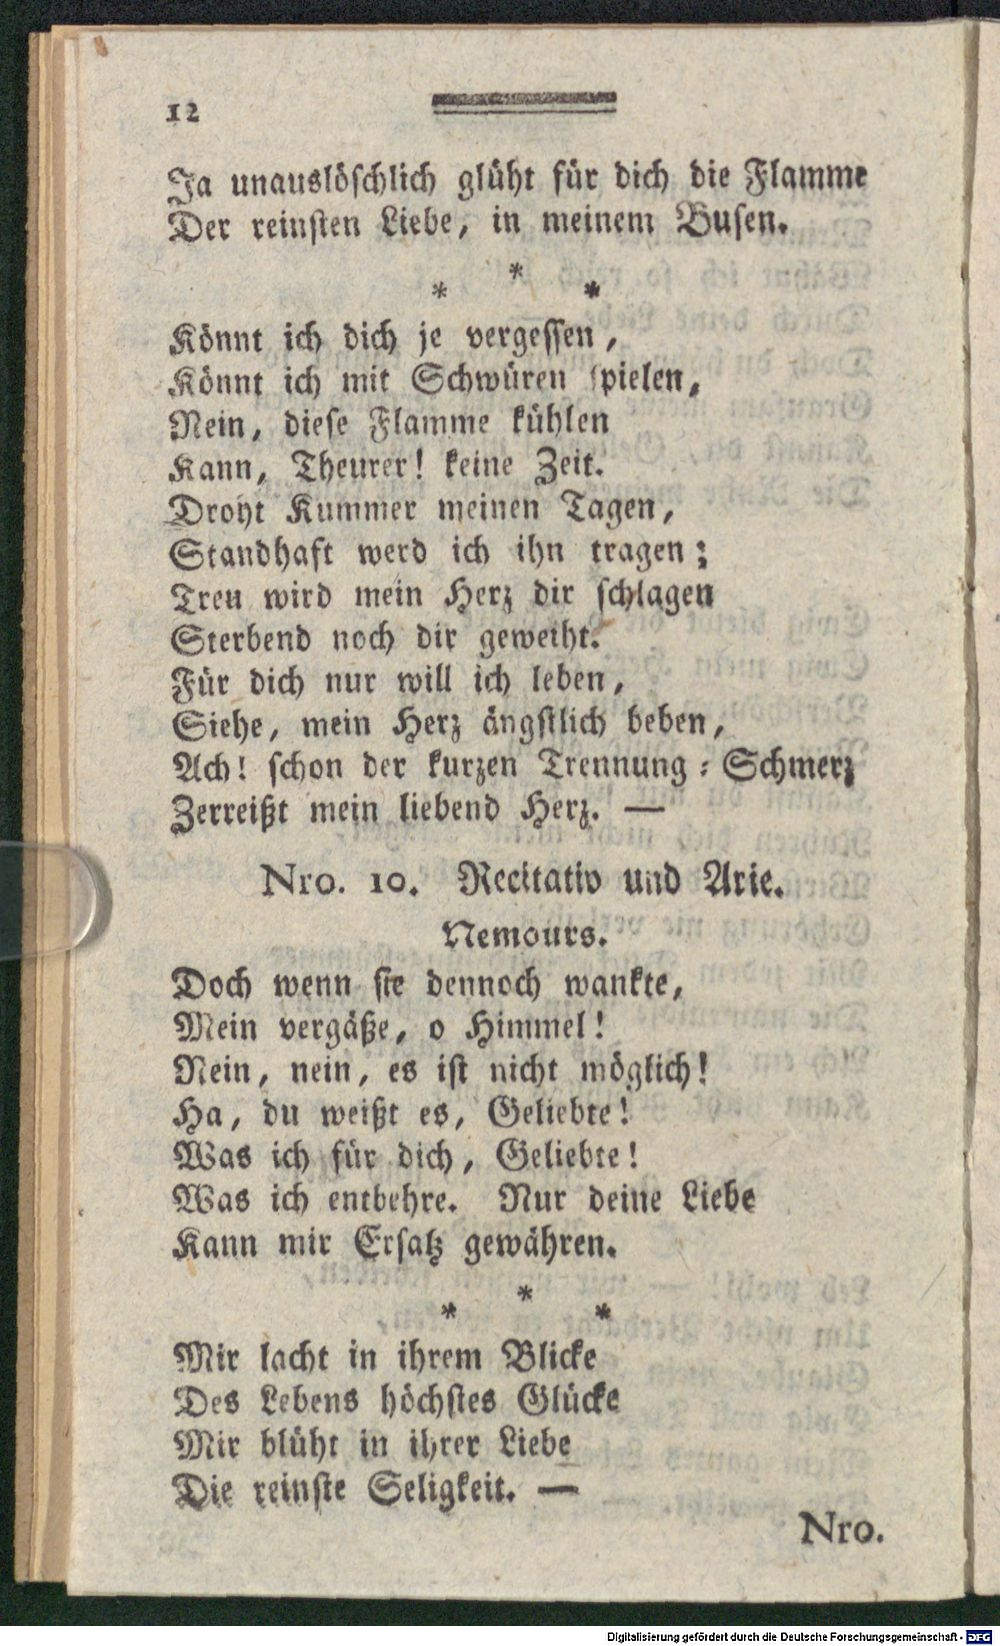 12
Ja unauslöschlich glüht für dich die Flamme
Der reinsten Liebe, in meinem Busen.
* * *
Könnt ich dich je vergessen,
Könnt ich mit Schwüren spielen,
Nein, diese Flamme kühlen
Kann, Theurer! keine Zeit.
Droht Kummer meinen Tagen,
Standhaft werd ich ihn tragen;
Treu wird mein Herz dir schlagen
Sterbend noch dir geweiht.
Für dich nur will ich leben,
Siehe, mein Herz ängstlich beben,
Ach! schon der kurzen Trennung-Schmerz
Zerreißt mein liebend Herz. —
Nro. 10. Recitativ und Arie.
Nemours.
Doch wenn sie dennoch wankte,
Mein vergäße, o Himmel!
Nein, nein, es ist nicht möglich!
Ha, du weißt es, Geliebte!
Was ich für dich, Geliebte!
Was ich entbehre. Nur deine Liebe
Kann mir Ersatz gewähren.
* * *
Mir lacht in ihrem Blicke
Des Lebens höchstes Glücke
Mir blüht in ihrer Liebe
Die reinste Seligkeit. —
Nro.
Digitalisierung gefördert durch die Deutsche Forschungsgemeinschaft - DFG